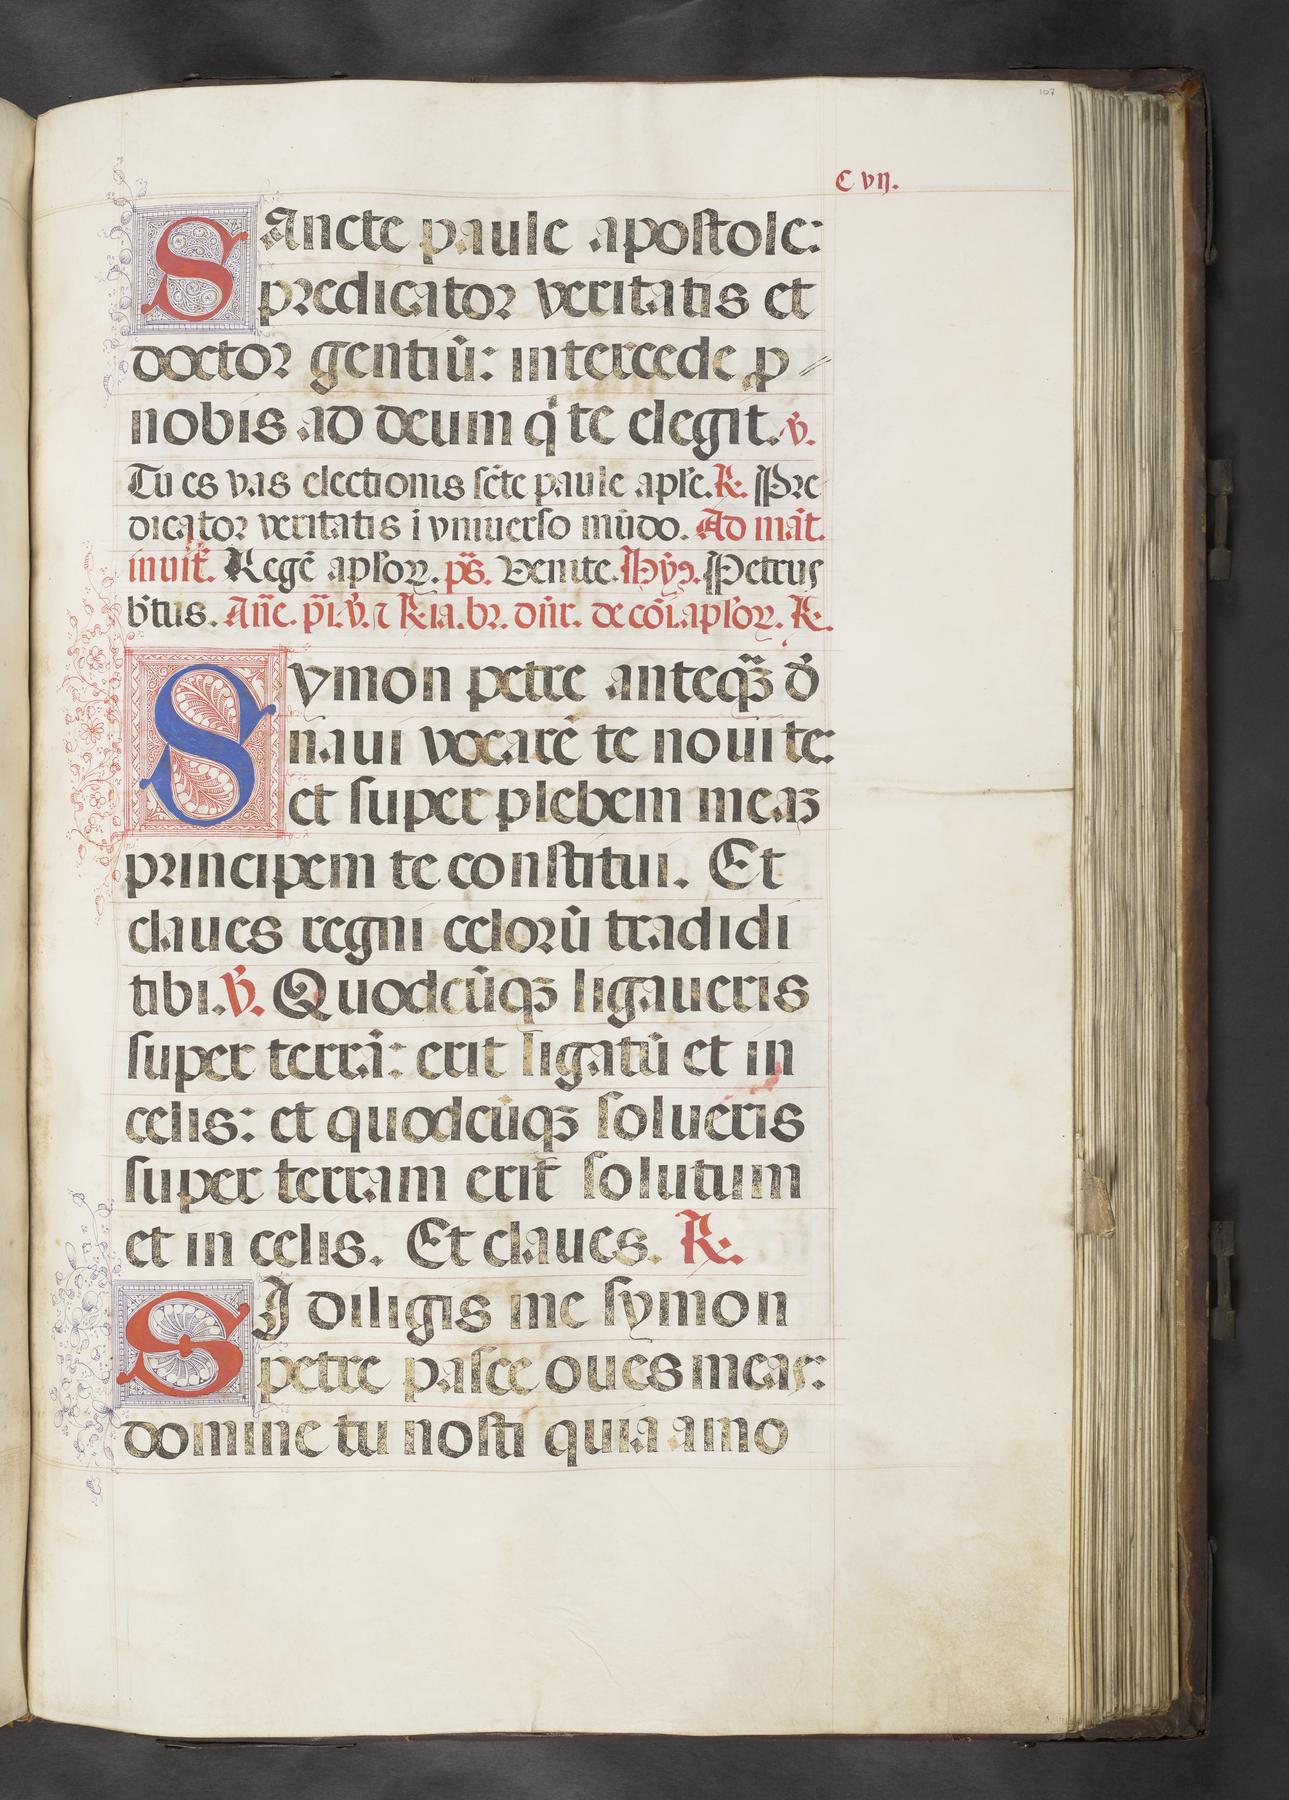 107
C vij.
Sancte paule apostole:
predicator veritatis et
doctor gentiū: intercede ꝓ
nobis ad deum q̇ te elegit. ℣.
Tu es vas electionis sc̄te paule apl̄e. ℟. Pre
dicator veritatis ī vniuerso mūdo. Ad mat̄.
inuit̄. Regē apl̄oꝝ. ps̄. Venite. Hȳ. Petrus
b̄tus. An̄e. p̄i. ℣. ⁊ ℟ia. br. dn̄r. de cōi. apl̄oꝝ. ℟.
Symon petre anteqꝫ̄ d̄
naui vocarē te noui te:
et super plebem meaꝫ
principem te constitui. Et
claues regni celorū tradidi
tibi. ℣. Quodcūqꝫ ligaueris
super terrā: erit ligatū et in
celis: et quodcūqꝫ solueris
super terram erit solutum
et in celis. Et claues. ℟.
SI diligis me symon
petre pasce oues meas:
domine tu nosti quia amo